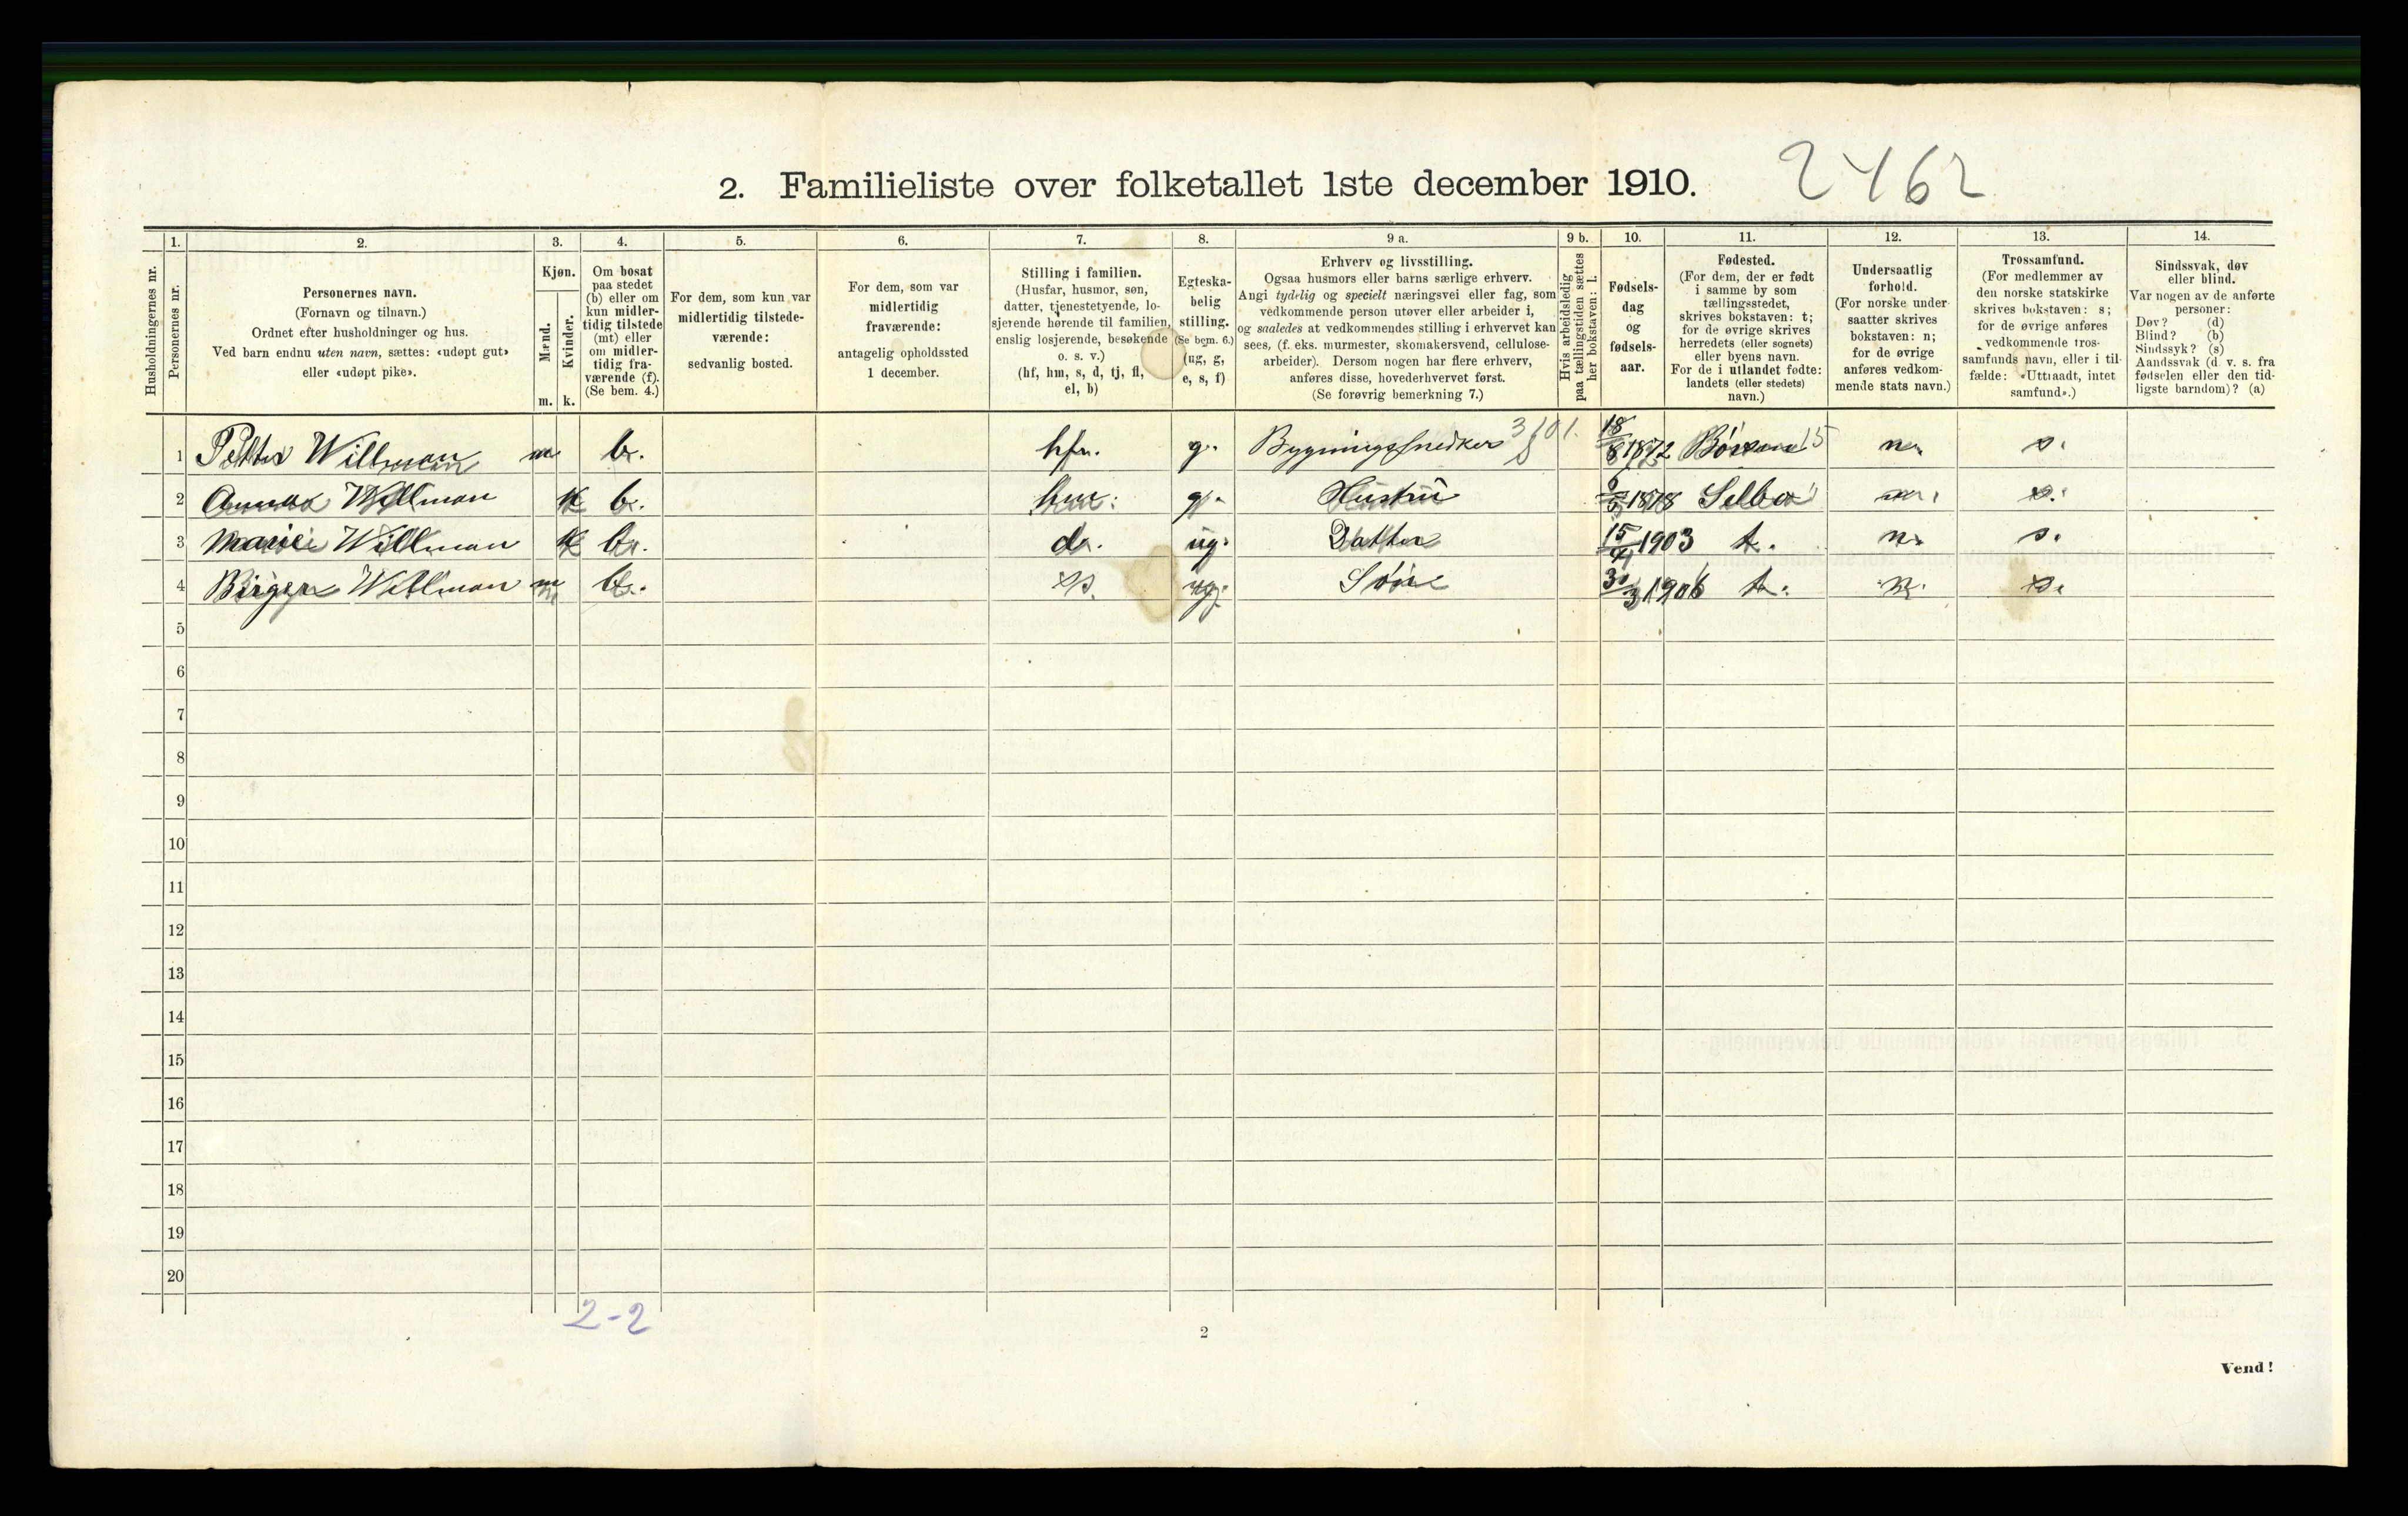 2. Familieliste over folketallet 1ste december 1910. 2462
Husholdningernes nr.
1.
Personernes nr.
2.
Personernes navn.
(Fornavn og tilnavn.)
Ordnet efter husholdninger og hus.
Ved barn endnu uten navn, sættes: «udøpt gut»
eller «udøpt pike».
3.
Kjøn.
Mænd.
Kvinder.
m. k.
4.
Om bosat
paa stedet
(b) eller om
kun midler-
tidig tilstede
(mt) eller
om midler-
tidig fra-
værende (f).
(Se bem. 4.)
5.
For dem, som kun var
midlertidig tilstede-
værende:
sedvanlig bosted.
6.
For dem, som var
midlertidig
fraværende:
antagelig opholdssted
1 december.
7.
Stilling i familien.
(Husfar, husmor, søn,
datter, tjenestetyende, lo-
sjerende hørende til familien,
enslig losjerende, besøkende
o. s. v.)
(hf, hm, s, d, tj, fl,
el, b)
8.
Egteska-
belig
stilling.
(Se bem. 6.)
(ug, g,
e, s, f)
9 a.
Erhverv og livsstilling.
Ogsaa husmors eller barns særlige erhverv.
Angi tydelig og specielt næringsvei eller fag, som
vedkommende person utøver eller arbeider i,
og saaledes at vedkommendes stilling i erhvervet kan
sees, (f. eks. murmester, skomakersvend, cellulose-
arbeider). Dersom nogen har flere erhverv,
anføres disse, hovederhvervet først.
(Se forøvrig bemerkning 7.)
9 b.
Hvis arbeidsledig
paa tællingstiden sættes
her bokstaven: l.
10.
Fødsels-
dag
og
fødsels-
aar.
11.
Fødested.
(For dem, der er født
i samme by som
tællingsstedet,
skrives bokstaven: t;
for de øvrige skrives
herredets (eller sognets)
eller byens navn.
For de i utlandet fødte:
landets (eller stedets)
navn.)
12.
Undersaatlig
forhold.
(For norske under-
saatter skrives
bokstaven: n;
for de øvrige
anføres vedkom-
mende stats navn.)
13.
Trossamfund.
(For medlemmer av
den norske statskirke
skrives bokstaven: s;
for de øvrige anføres
vedkommende tros-
samfunds navn, eller i til-
fælde: «Uttraadt, intet
samfund».)
14.
Sindssvak, døv
eller blind.
Var nogen av de anførte
personer:
Døv? (d)
Blind? (b)
Sindssyk? (s)
Aandssvak (d. v. s. fra
fødselen eller den tid-
ligste barndom)? (a)
1 Petter Willman m b. hf. g. Bygningssnedker 3101. 18/8 1872 Børsen 15 n. s.
2 Anna Willman k b. hm. g. Hustru 1878 Selbu n. s.
3 Marie Willman k b. d. ug. Datter 15/4 1903 t. n. s.
4 Birger Willman m b. s. ug. Søn 30/3 1906 t. n. s.
5
6
7
8
9
10
11
12
13
14
15
16
17
18
19
20
2-2
2
Vend!